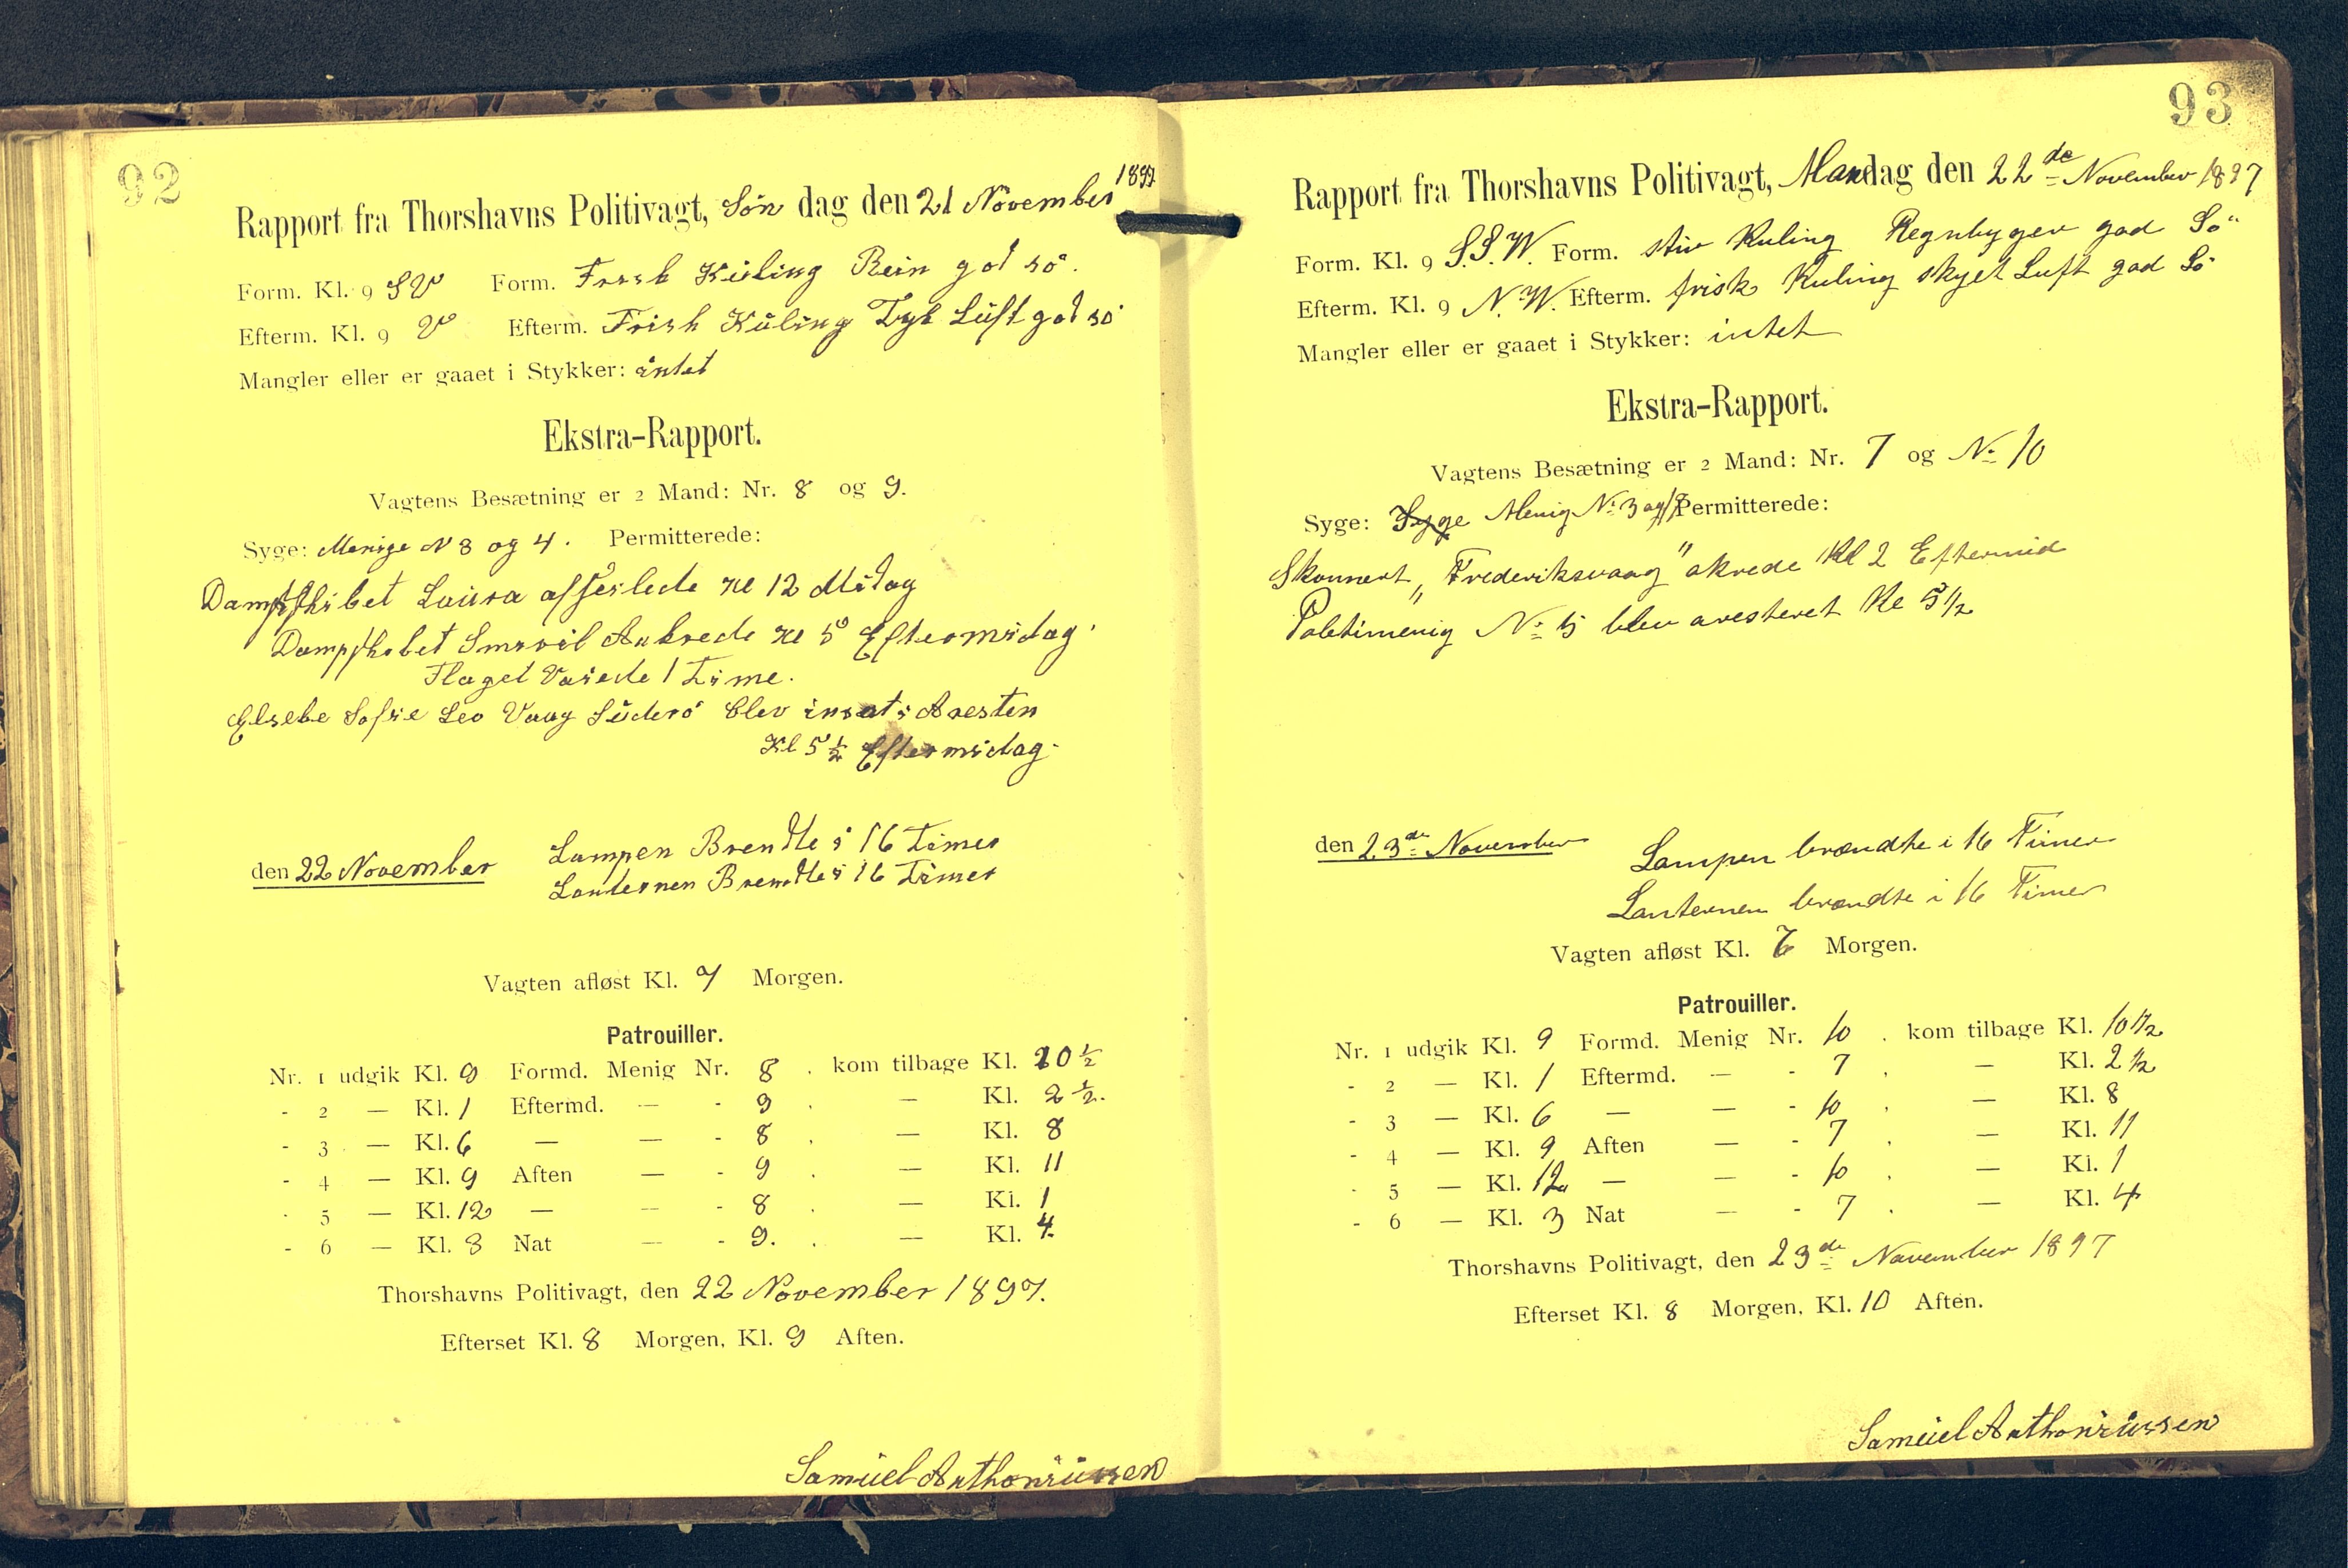 92
Rapport fra Thorshavns Politivagt, Søn dag den 21 November 1897
Form. Kl. 9 SV Form. Frisk Kuling Rein god sö.
Efterm. Kl. 9 V Efterm. Frisk Kuling Tyk Luft god sö
Mangler eller er gaaet i Stykker: intet
Ekstra-Rapport.
Vagtens Besætning er 2 Mand: Nr. 8 og 9.
Syge: Menige N 3 og 4. Permitterede:
Dampskibet Laura afseilede Kl 12 Midag
Dampskibet Smiril Ankrede Kl 5 Eftermidag.
Flaget Vaiede 1 Time.
Elsebe Sofie Leo Vaag Süderö blev insat i Aresten
Kl 5 ½ Eftermidag.
den 22 November
Lampen Brendte i 16 Timer
Lanternen Brendte i 16 Timer
Vagten afløst Kl. 7 Morgen.
Patrouiller.
Nr. 1 udgik Kl. 9 Formd. Menig Nr. 8 . kom tilbage Kl. 10 ½
- 2 — Kl. 1 Eftermd. — - 9 . — Kl. 2 ½.
- 3 — Kl. 6 — — - 8 . — Kl. 8
- 4 — Kl. 9 Aften — - 9 . — Kl. 11
- 5 — Kl. 12 — — - 8 . — Kl. 1
- 6 — Kl. 3 Nat — - 9. . — Kl. 4.
Thorshavns Politivagt, den 22 November 1897.
Efterset Kl. 8 Morgen, Kl. 9 Aften.
Samüel Anthoniüssen
93
Rapport fra Thorshavns Politivagt, Mandag den 22de November 1897
Form. Kl. 9 S.S.W. Form. stiv Kuling Regnbyger god Sö
Efterm. Kl. 9 N.W. Efterm. frisk Kuling skyet Luft god Sö
Mangler eller er gaaet i Stykker: intet
Ekstra-Rapport.
Vagtens Besætning er 2 Mand: Nr. 7 og No 10
Syge: Syge Menig No 3 og Permitterede:
Skonnert „Frederiksvaag" akrede Kl 2 Eftermid
Poletimenig No 15 blev aresteret Kl 5 1/2
den 23de November
Lampen brændte i 16 Timer
Lanternen brændte i 16 Timer
Vagten afløst Kl. 7 Morgen.
Patrouiller.
Nr. 1 udgik Kl. 9 Formd. Menig Nr. 10 . kom tilbage Kl. 10 1/2
- 2 — Kl. 1 Eftermd. — - 7 . — Kl. 2 1/2
- 3 — Kl. 6 — — - 10 . — Kl. 8
- 4 — Kl. 9 Aften — - 7 . — Kl. 11
- 5 — Kl. 12 — — - 10 . — Kl. 1
- 6 — Kl. 3 Nat — - 7 . — Kl. 4
Thorshavns Politivagt, den 23de November 1897
Efterset Kl. 8 Morgen, Kl. 10 Aften.
Samüel Anthoniüssen